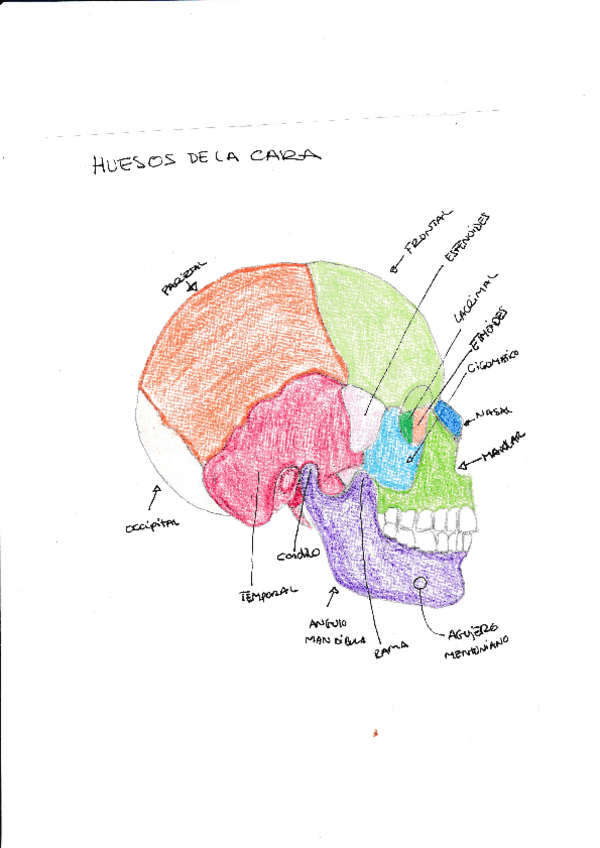 HUESOS DE LA CARA
FRONTAL
ESFENOIDES
PARIETAL
LACRIMAL
ETMOIDES
CIGOMATICO
NASAL
MAXILAR
OCCIPITAL
CONDILO
TEMPORAL
ANGULO
MANDIBULA
RAMA
AGUJERO
MENTONIANO